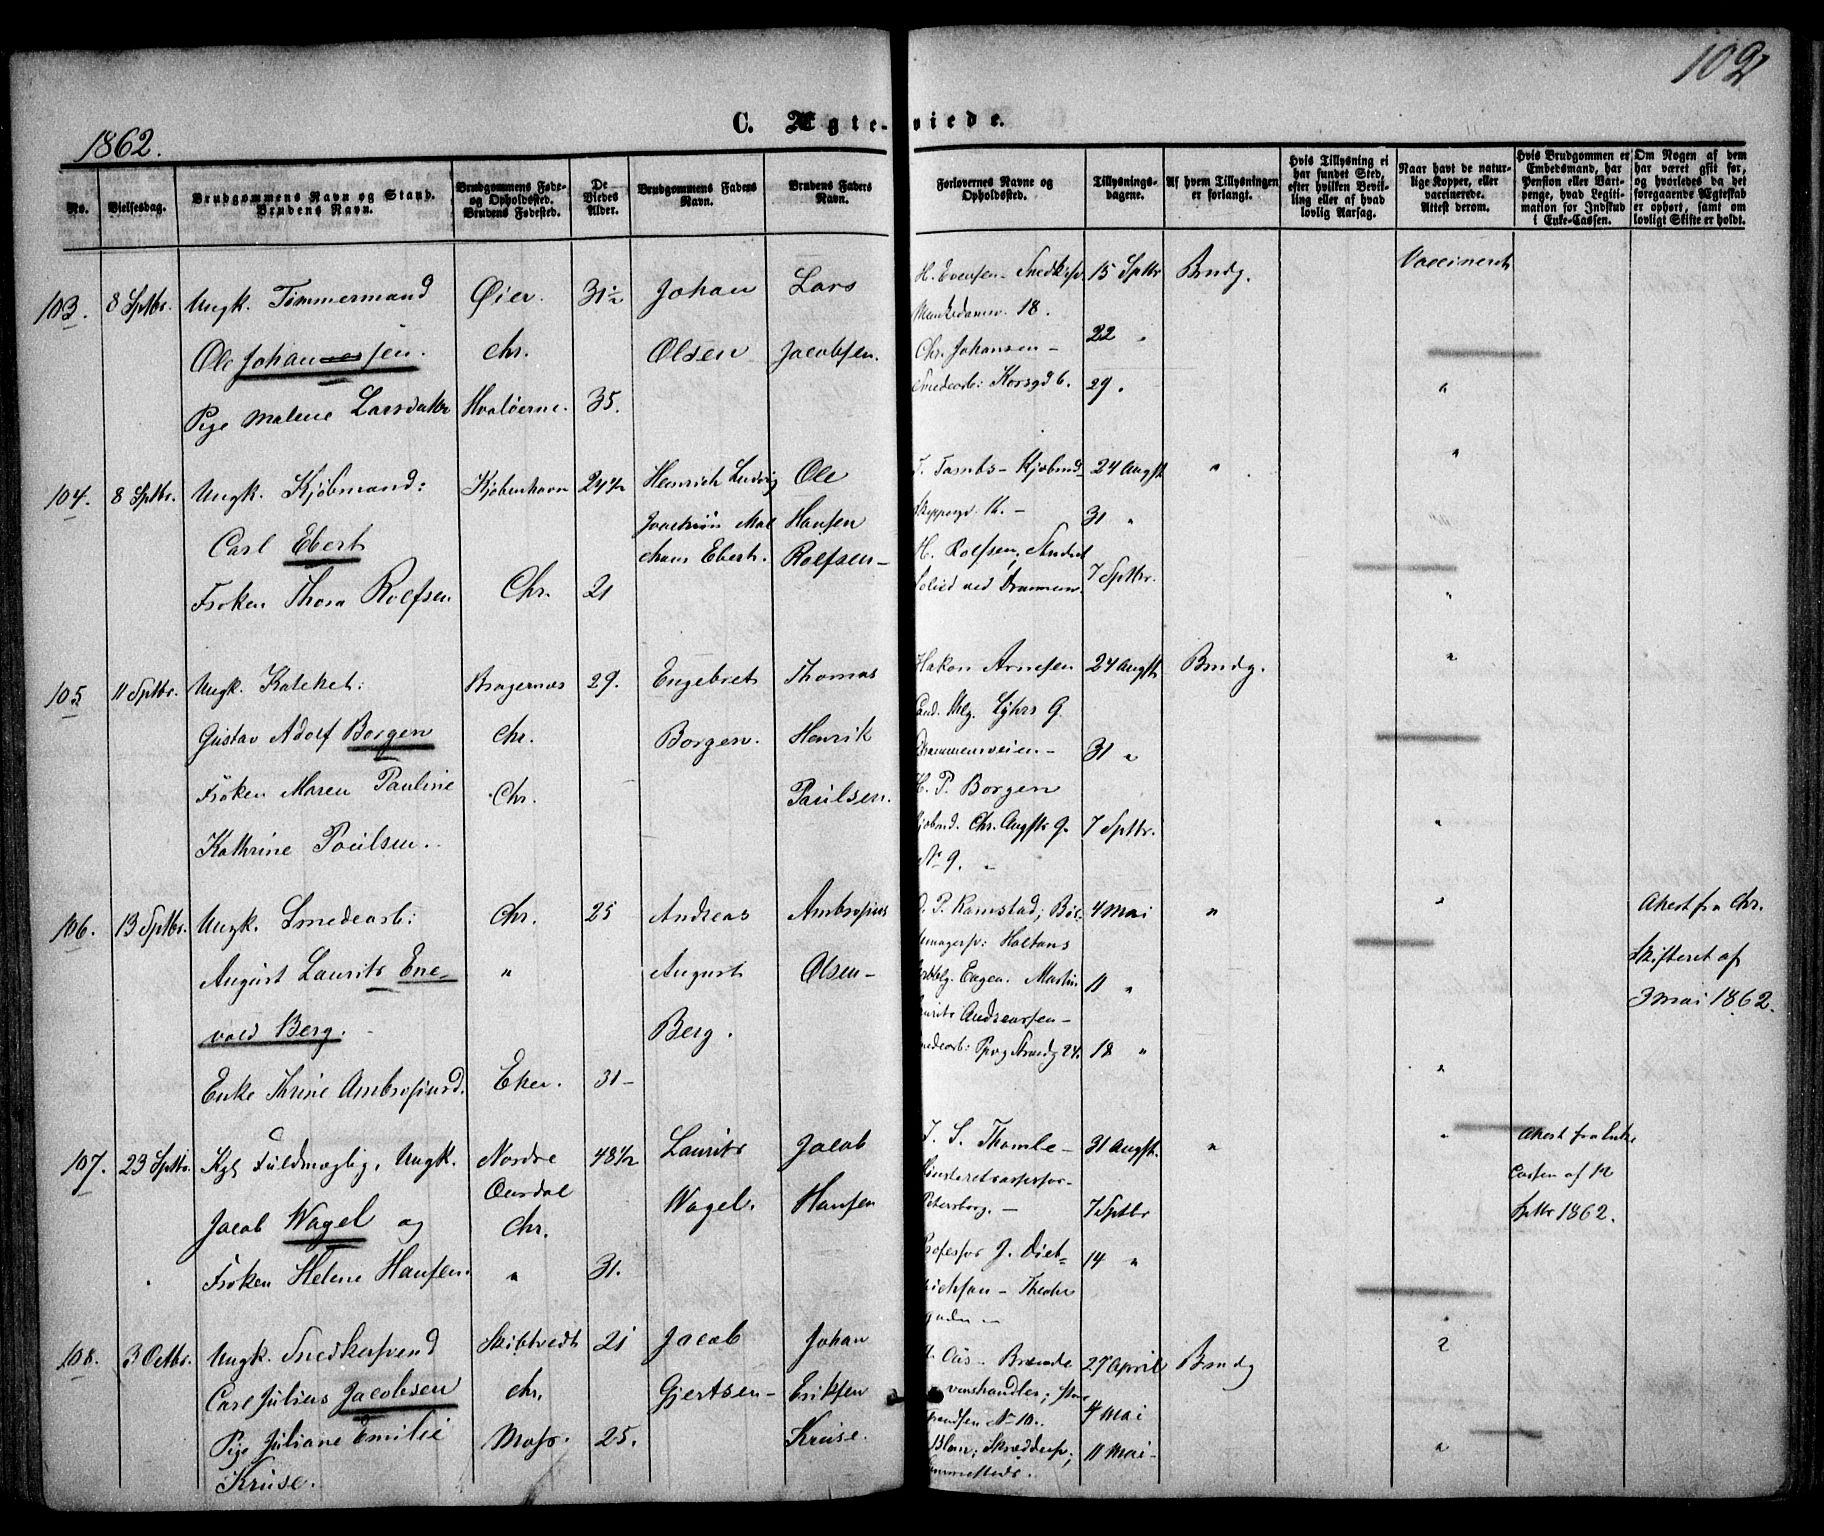 102
1862.
C. Ægte-viede.
No.
Vielsesdag.
Brudgommens Navn og Stand.
Brudens Navn.
Brudgommens Føde-
og Opholdssted.
Brudens Fødested.
De
Viedes
Alder.
Brudgommens Faders
Navn.
Brudens Faders
Navn.
Forlovernes Navne og
Opholdssted.
Tillysnings-
dagene.
Af hvem Tillysningen
er forlangt.
Hvis Tillysning ei
har fundet Sted,
efter hvilken Bevil-
ling eller af hvad
lovlig Aarsag.
Naar havt de natur-
lige Kopper, eller
vaccinerede.
Attest derom.
Hvis Brudgommen er
Embedsmand, har
Pension eller Vart-
penge, hvad Legiti-
mation for Indskud
i Enke-Cassen.
Om Nogen af dem
har været gift før,
og hvorledes da det
foregaaende Ægteskab
er ophørt, samt om
lovligt Skifte er holdt.
103. 8 Sptbr. Ungk. Tømmermand Øier. 31½ Johan Lars H. Evensen - Snedkersv. 15 Sptbr Brudg. Vaccineret
Munkedamsv. 18.
Ole Johannessen. Chr. Olsen Jacobsen. Chr. Johansen - 22 "
Smedearb: Korsgd 6. 29. "
Pige Malene Larsdatter Hvaløerne. 35.
104. 8 Sptbr. Ungk. Kjøbmand: Kjøbenhavn 24½ Heinrich Ludvig Ole Kjøbmd 24 Augst "
Joachim Mel Hansen 31 "
Carl Ebert chans Ebert. Rolfsen - H. Rolfsen, Student
Frøken Thora Rolfsen Chr. 21 ved Drammen 7 Sptbr. "
105 11 Sptbr. Ungk. Kateket: Bragernæs 29. Engebret Thomas Hakon Arnesen 24 Augst Brudg. "
Gustav Adolf Borgen Chr. Borgen. Henrik Cand. Lyhrs G.
Drammensveien - 31 "
Frøken Maren Pauline Chr. Paulsen. H. P. Borgen
Kjøbmd. Chr. Augsts G. 7 Sptbr. "
Kathrine Poulsen. No 9.
106. 13 Sptbr. Ungk. Smedearb: Chr. 25 Andreas Ambrosius O. P. Ramstad; 4 Mai " " Attest fra Chr.
magersv: Holtans Skifteret af
August Laurits Ene- " August Olsen - Engen. Martin 11 " 3 Mai 1862.
vold Berg. Berg. Laurits Andreassen -
Smedearb: 24. 18 "
Enke Thrine Ambrosiusd. Eker. 31 - "
107. 23 Sptbr. Kgl Fuldmægtig, Ungk. Nordre 48½ Laurits Jacob J. S. Thomle - 31 Augst. " " Attest fra Enke
Aurdal Cassen af 12
Jacob Wagel og Chr. Wagel. Hansen Petersborg. - 7 Sptbr Sptbr 1862.
Frøken Helene Hansen. " 31. Professor J. Diet- 14 "
richson - Theater
gaden -
108. 3 Octbr. Ungk. Snedkersvend Skibtvedt 21 Jacob Johan Aas - Brænde 27 April Brudg "
Carl Julius Jacobsen Chr. Gjertsen - Eriksen vinshandler; 4 Mai
No 10.
Pige Juliane Emilie Moss. 25. Kruse. Skrædersv; 11 Mai - "
Kruse.